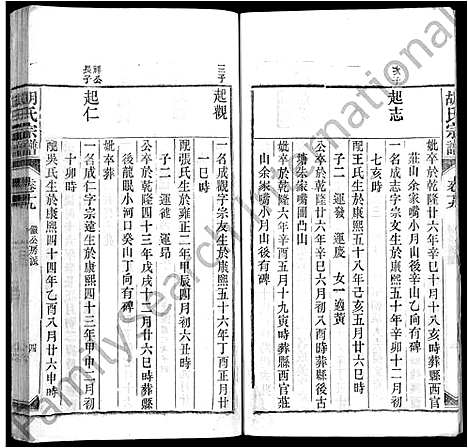 胡氏宗譜
卷十九
妣卒於乾隆廿六年辛巳十月十八亥時葬縣西官
莊山余家嘴小月山後右後辛山乙向有碑
次子
起志
一名成志字宗文生於康熙五十年辛卯十二月
七亥時
配王氏生於康熙五十八年己亥三月廿六巳時
子二 運發 運慶 女一適黃
公卒於乾隆廿六年辛巳六月初六巳時葬縣後古
塘朱家嘴圍凸山
妣卒於乾隆六年辛酉五月十九寅時葬縣西官莊
山余家嘴小月山後有碑
三子
起觀
一名成觀字宗友生於康熙五十六年丁酉正月廿
一巳時
配張氏生於雍正二年甲辰四月初六丑時
子二 運禩 運昂
公卒於乾隆四十三年戊戌十二月廿六巳時葬縣
後龍眼小河口癸山丁向有碑
妣卒葬
祥公
長子
起仁
一名成仁字宗遠生於康熙四十三年甲申二月初
十卯時
配吳氏生於康熙四十四年乙酉八月廿六申時
胡氏宗譜
卷十九
公房派
四
FamilySearch International